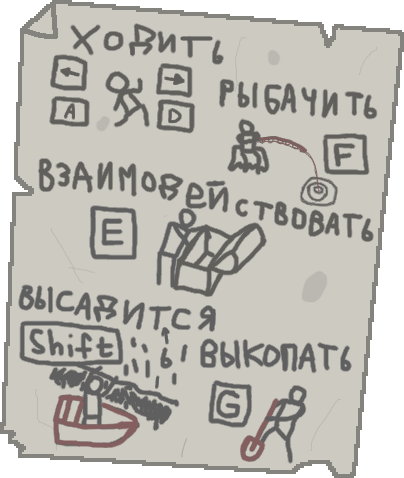 ХОДИТЬ
← →
A D
РЫБАЧИТЬ
F
ВЗАИМОВЕЙСТВОВАТЬ
E
ВЫСАДИТСЯ
ь
Shift
ВЫКОПАТЬ
G